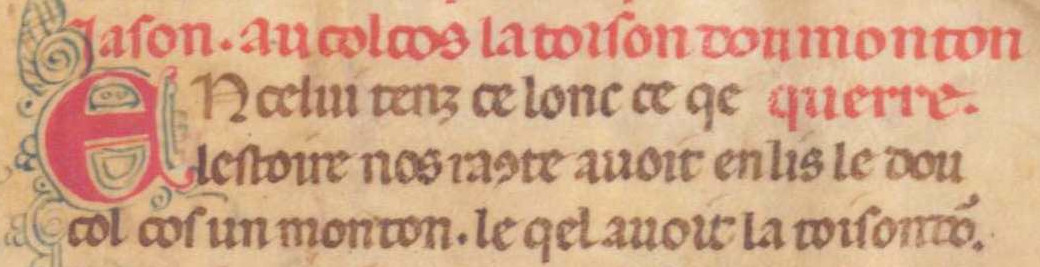 Jason. au colcos la toison dou monton
EN celui tenz ce lonc ce qe querre.
lestoire nos ra9te auoit en lis le dou
col cos un monton. le qel auoit la toison